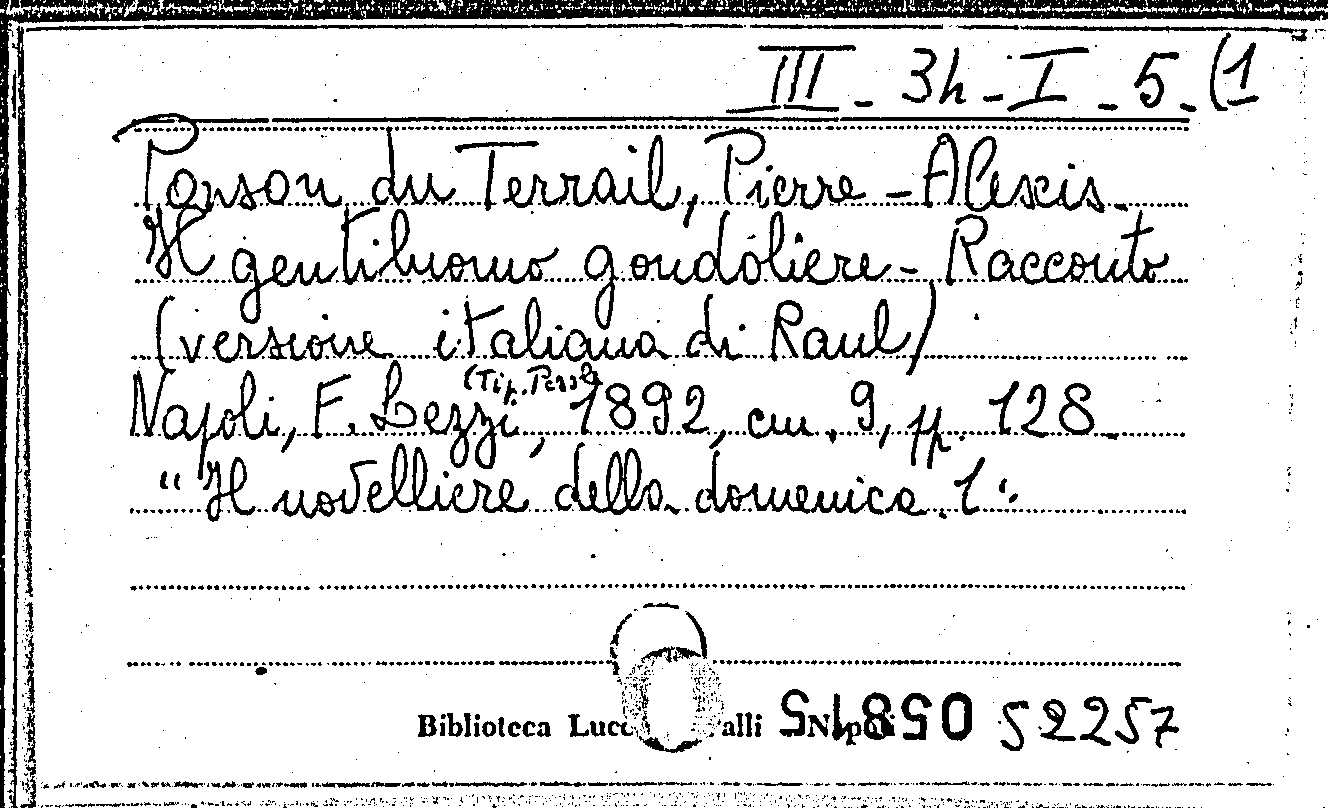 III - 3h - I - 5 - (1
Ponson du Terrail, Pierre-Alexis.
Il gentiluomo gondoliere - Racconto
(versione italiana di Raul)
(Tip.
Napoli, F. Lezzi, 1892, cm. 9, pp. 128
"Il novelliere della domenica. 1".
Biblioteca Lucc alli Nap
52257